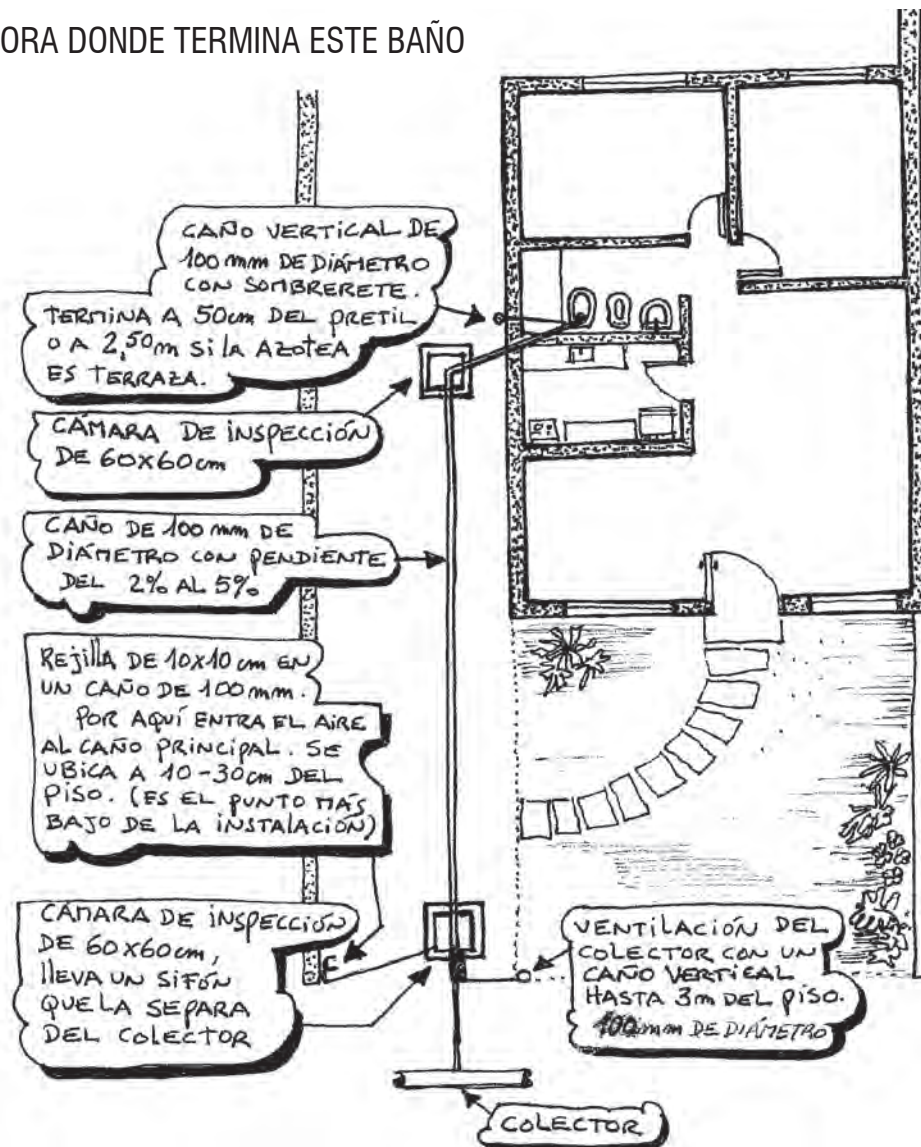 ORA DONDE TERMINA ESTE BAÑO
CAÑO VERTICAL DE
100 mm DE DIÁMETRO
CON SOMBRERETE.
TERMINA A 50cm DEL PRETIL
O A 2,50m Si LA AZOTEA
ES TERRAZA.
CÁMARA DE iNSPECCIÓN
DE 60x60cm
CAÑO DE 100 mm DE
DIÁMETRO CON PENDIENTE
DEL 2% AL 5%
REjillA DE 10x10 cm EN
UN CAÑO DE 100 mm.
POR AQUÍ ENTRA EL AIRE
AL CAÑO PRINCIPAL. SE
UBICA A 10-30cm DEL
PISO. (ES EL PUNTO MÁS
BAJO DE LA iNSTALACIÓN)
CÁMARA DE iNSPECCIÓN
DE 60x60cm,
llEVA UN SIFÓN
QUE LA SEPARA
DEL COLECTOR
VENTILACIÓN DEL
COLECTOR CON UN
CAÑO VERTICAL
HASTA 3m DEL PISO.
100mm DE DIÁMETRO
COLECTOR